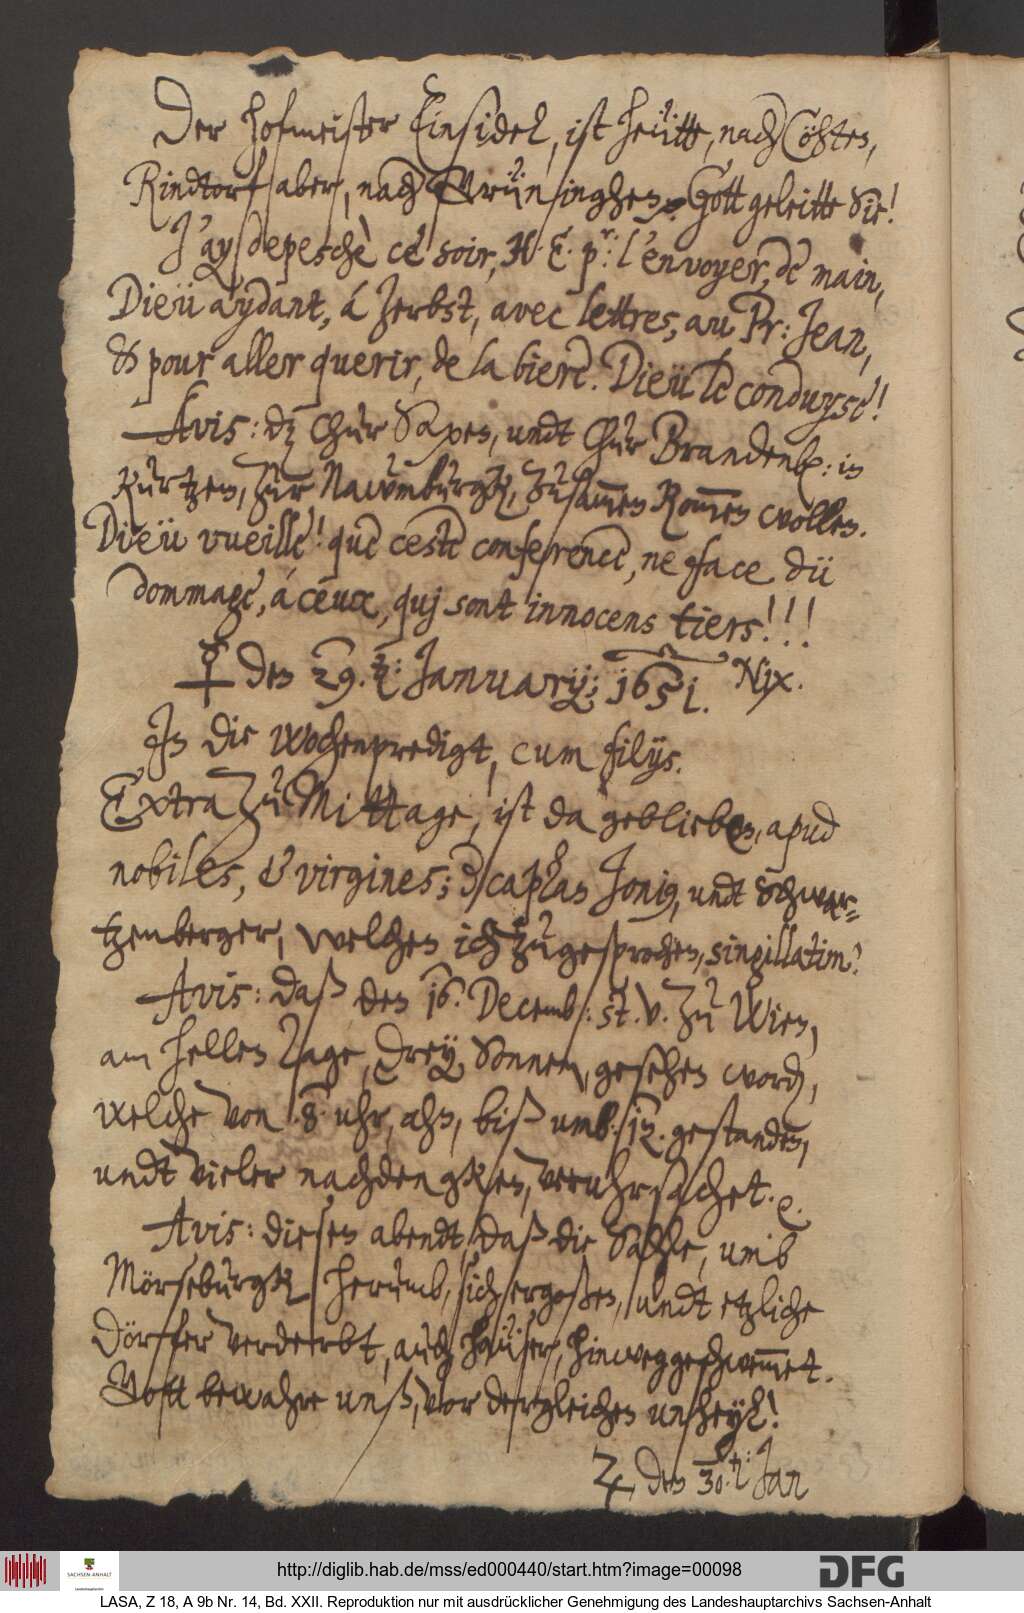 Der Hofmeister Einsidel, ist heütte, nach Cöhten,
Rindtorf aber, nach Grüninghen. Gott geleitte Sie!
J'ay depeschè cè soir, H. E. pr: l'envoyer, de main,
Dieü aydant, á Zerbst, avec lettres, au Pr: Jean,
& pour aller querir, de la biere. Dieü le conduyse!
Avis: dz Chur Saxen, undt Chur Brandenb: in
kurtzen, zur Naumburgk, zusammen kommen wollen.
Dieü vueille! que ceste conference, ne face dü
dommage, á ceux, quj sont innocens tiers!!!
☿ den 29. t: Januarij; 1651. Nix.
In die wochenpredigt, cum filijs.
Extra zu Mittage, ist da geblieben, apud
nobiles, & virgines; der caplan Jonius, undt Schwar-
tzenberger, welchen ich zugesprochen, singillatim.
Avis: daß den 16. Decemb: st. v. zu Wien,
am hellen Tage, drey Sonnen, gesehen word,
welche von .8. uhr, ahn, biß umb: 12. gestanden,
undt vieler nachdengken, veruhrsachet. e.
Avis: diesen abendt, daß die Sahle, umb
Mörseburgk herumb, sich ergoßen, undt etzliche
Dörffer verderbt, auch haüser, hinweggeschwemmet.
Gott bewahre unß, vor dergleichen unheyl!
♃ den 30. t: Jan
http://diglib.hab.de/mss/ed000440/start.htm?image=00098
SACHSEN-ANHALT
DFG
LASA, Z 18, A 9b Nr. 14, Bd. XXII. Reproduktion nur mit ausdrücklicher Genehmigung des Landeshauptarchivs Sachsen-Anhalt